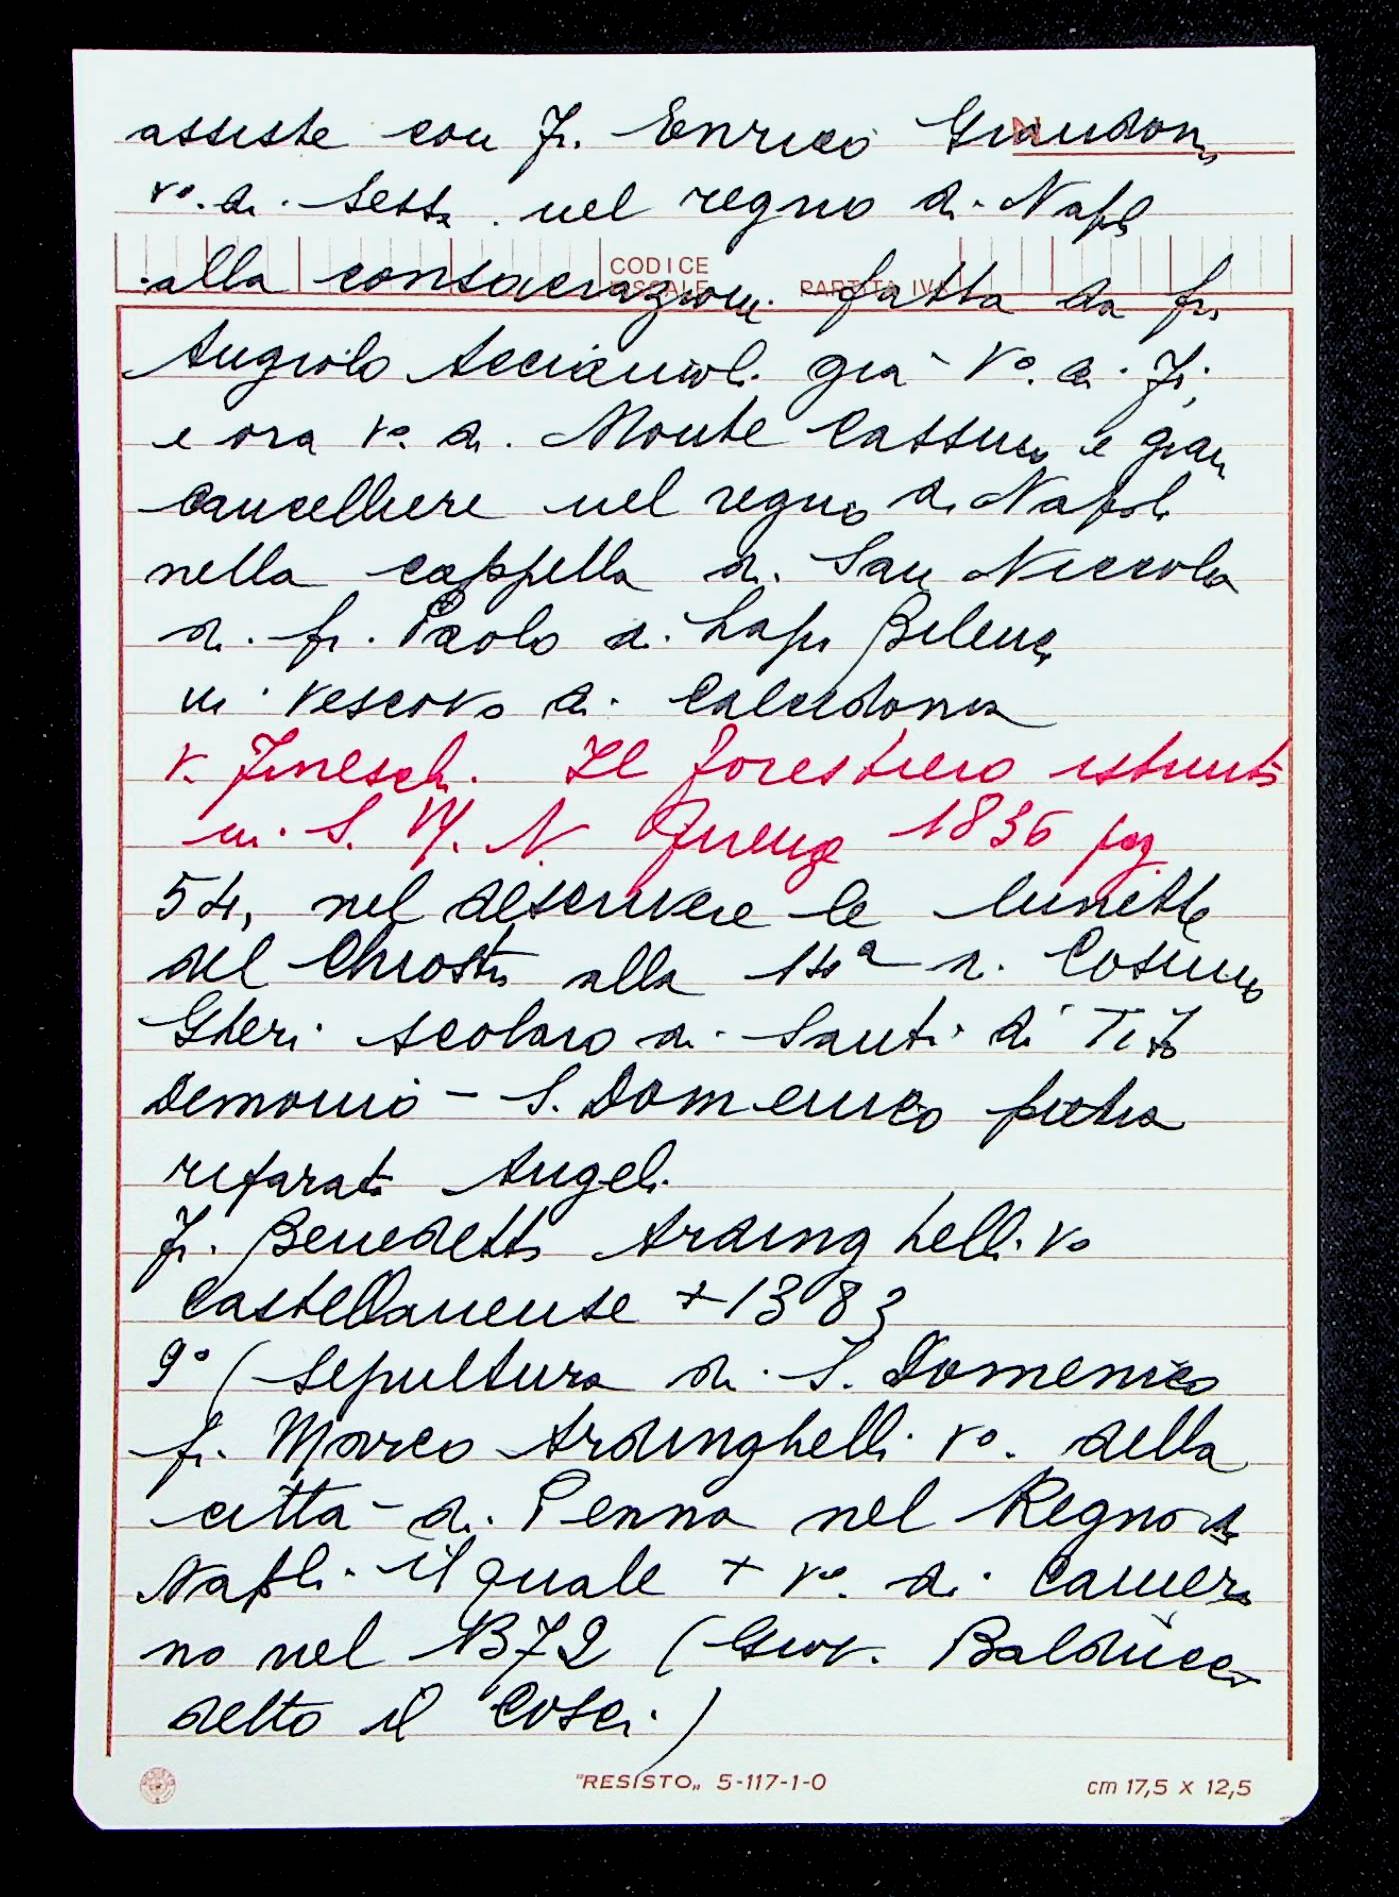 assiste con fr. Enrico Giandoni
N
v.o di Sessa nel regno di Napoli
alla consacrazione fatta da fr.
CODICE FISCALE PARTITA IVA
Angiolo Acciaiuoli già v.o di Fi.
e ora v.o di Monte Cassino e gran
cancelliere nel regno di Napoli
nella cappella di San Niccola
di fr. Paolo di Lapo
vescovo di Calcedonia
v. Fineschi. Il forestiero istruito
in S. M. N. Firenze 1836 pag
54, nel descrivere le lunette
del Chiostro alla 14a di Cosimo
Gheri scolaro di Santi di Tito
Demonio - S. Domenico pietra
riparato Angeli
fr. Benedetto Ardinghelli vo
Castellanense + 1383
9° (sepultura di S. Domenico
fr. Marco Ardinghelli v.o della
città di Penna nel Regno di
Napoli il quale + v.o di Camer
no nel 1372 (Giov. Balducci
detto il Cosci)
"RESISTO„ 5-117-1-0 cm 17,5 x 12,5